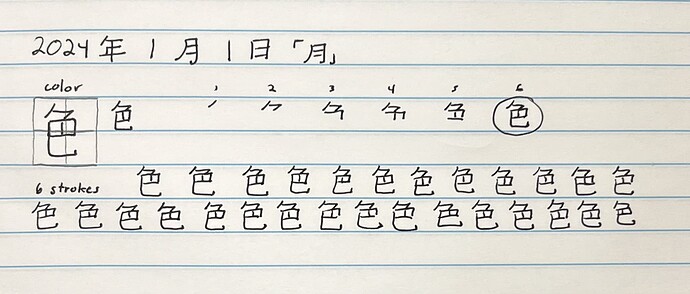 2024年 1月 1日「月」
color 1 2 3 4 5 6
色 色 色
6 strokes 色 色 色 色 色 色 色 色 色 色 色 色
色 色 色 色 色 色 色 色 色 色 色 色 色 色 色 色